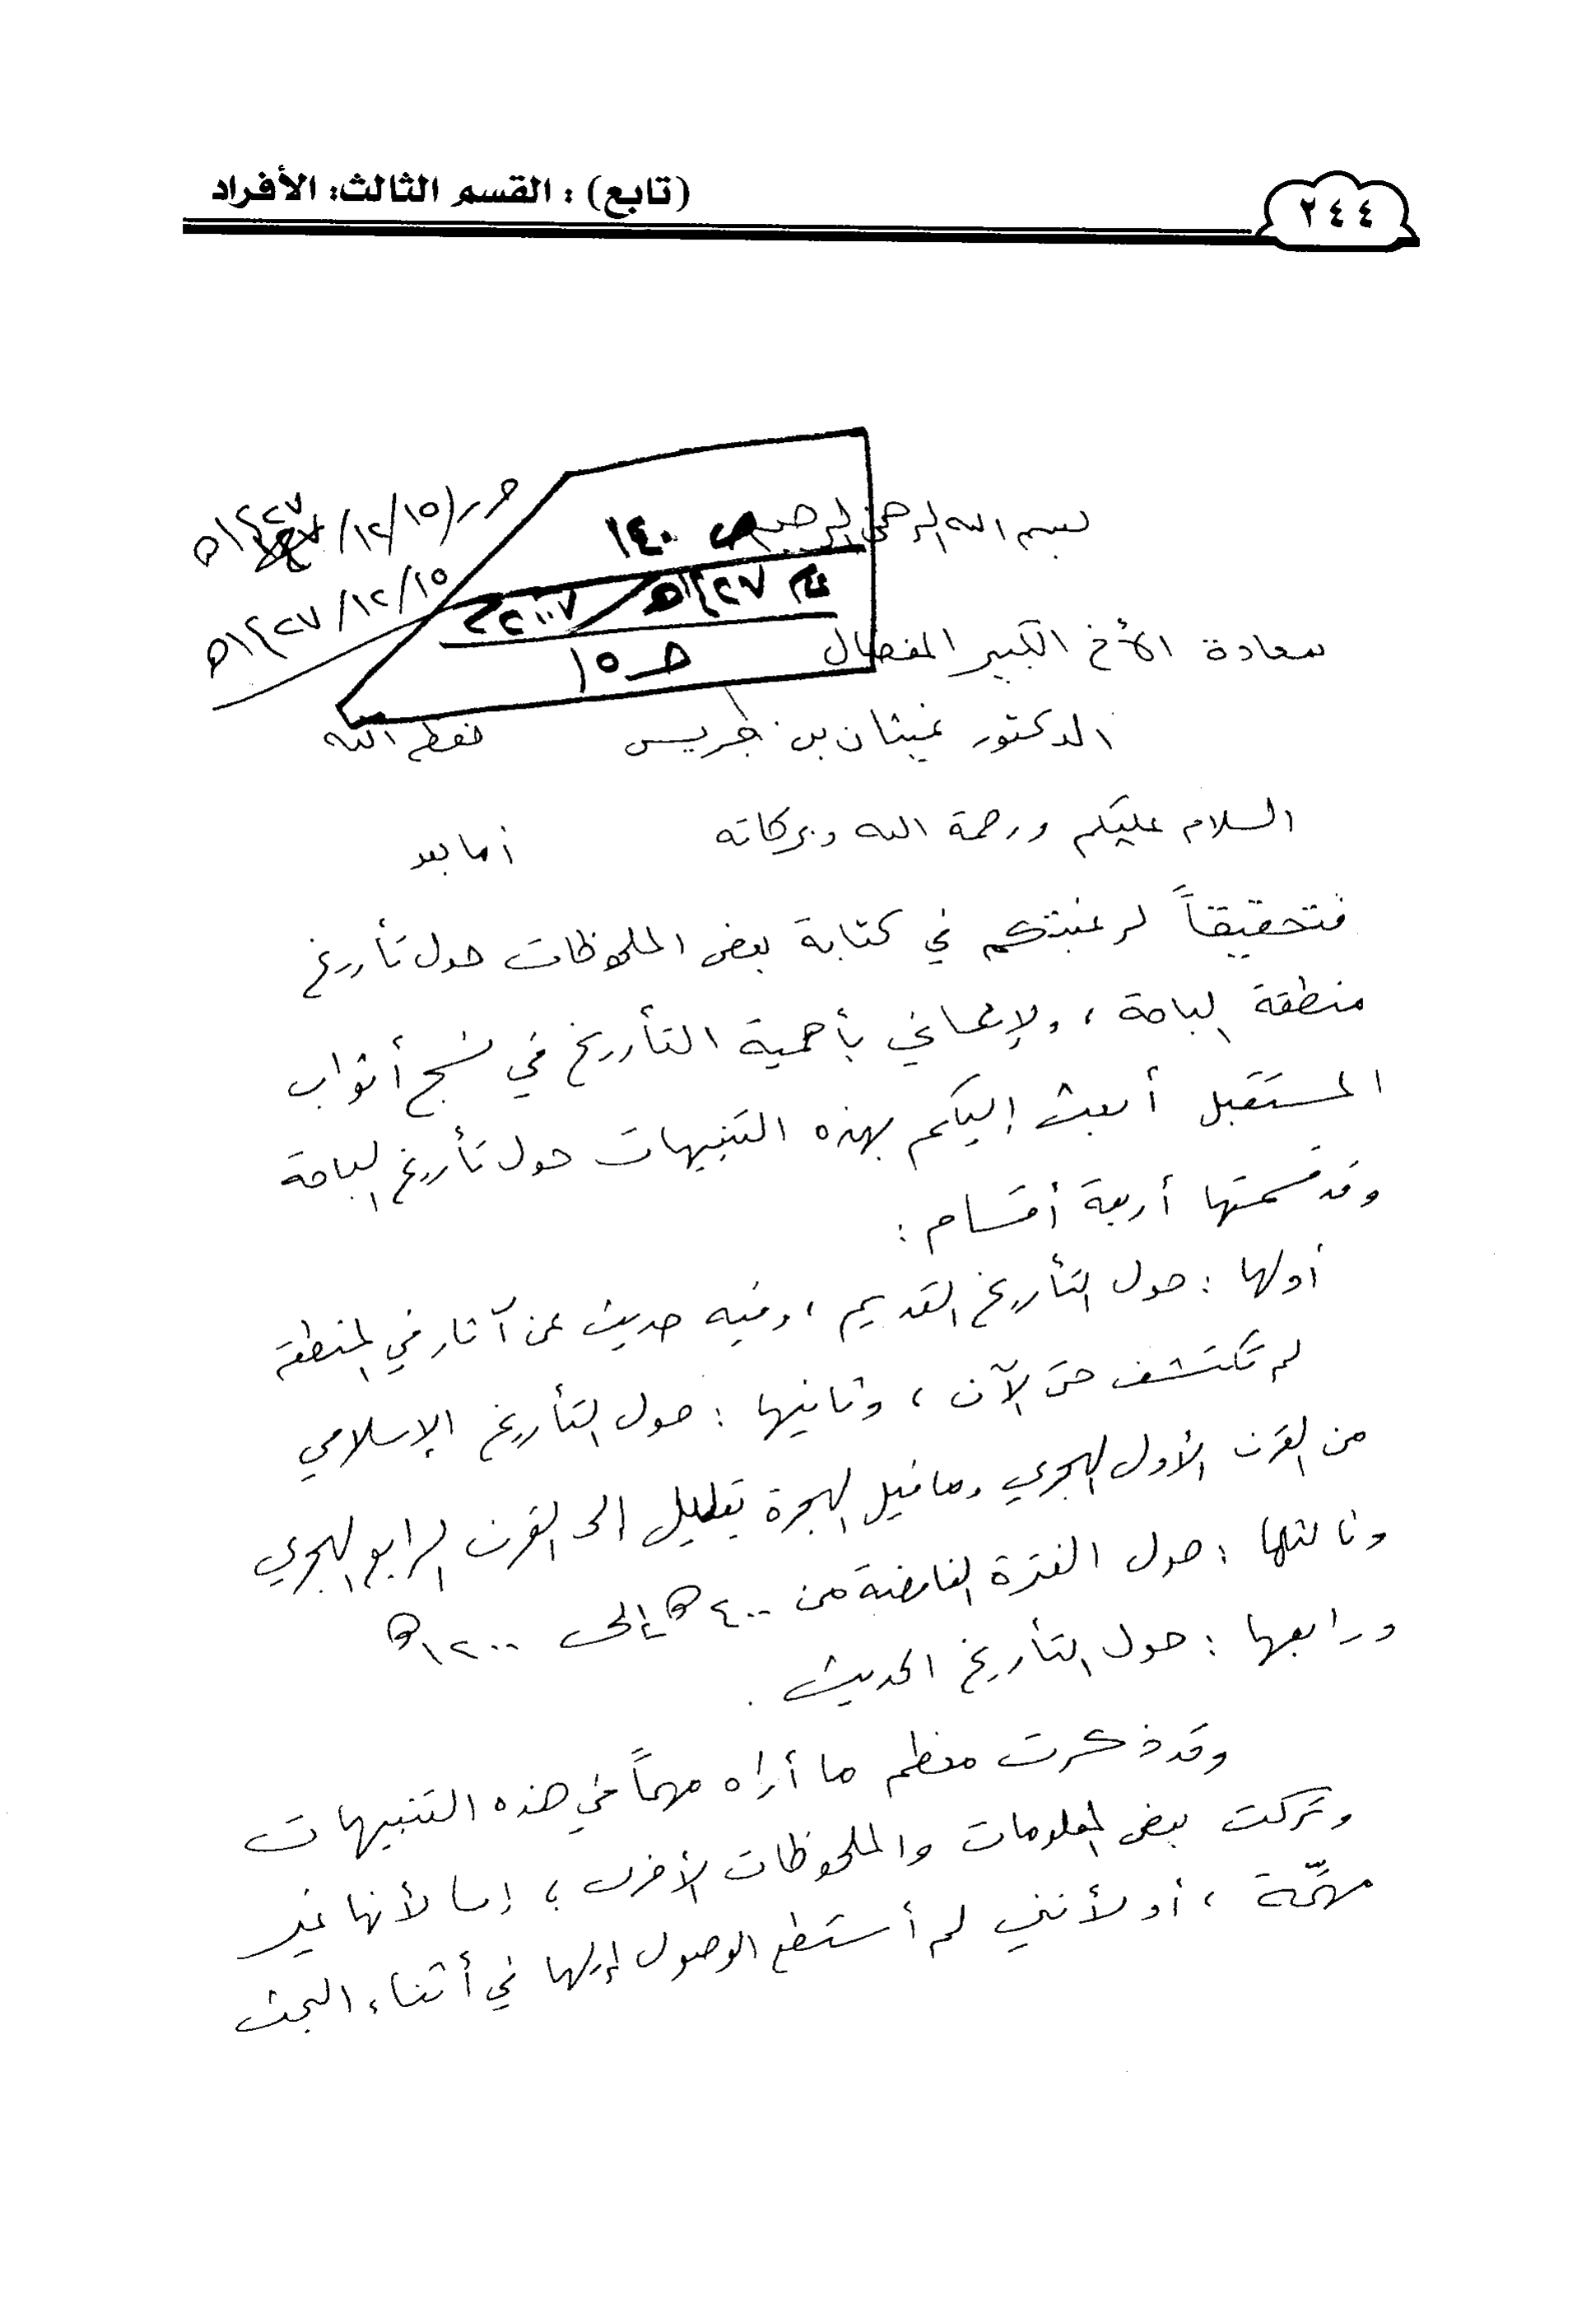 ٢٤٤
(تابع) : القسم الثالث: الأفراد
بسم الله الرحمن الرحيم
حرر (١٥/١٢/١٤٢٧هـ
١٥/١٢/١٤٢٧هـ
ص ١٤٠
عام ١٤٢٧هـ/٢٠٠٧م
حـ١٥
سعادة الأخ الكبير المفضال
الدكتور غيثان بن جريس حفظه الله
السلام عليكم ورحمة الله وبركاته أما بعد
فتحقيقاً لرغبتكم في كتابة بعض الملحوظات حول تأريخ
منطقة الباحة ، ولإيماني بأهمية التأريخ في نسج أثواب
المستقبل أبعث إليكم بهذه التنبيهات حول تأريخ الباحة
وقد قسمتها أربعة أقسام :
أولها : حول التأريخ القديم ، وفيه حديث عن آثار في المنطقة
لم تكتشف حتى الآن ، وثانيها : حول التأريخ الإسلامي
من القرن الأول الهجري وما قبل الهجرة بقليل إلى القرن الرابع الهجري
وثالثها : حول الفترة الغامضة من ٤٠٠هـ إلى ١٢٠٠هـ
ورابعها : حول التأريخ الحديث .
وقد ذكرت معظم ما أراه مهماً في هذه التنبيهات
وتركت بعض المعلومات والملحوظات الأخرى ؛ إما لأنها غير
مهمّة ، أو لأنني لم أستطع الوصول إليها في أثناء البحث